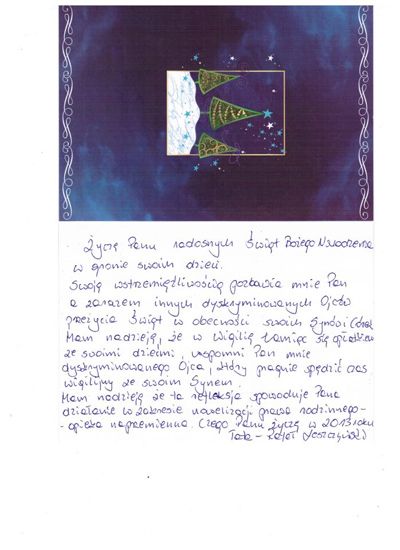 Życzę Panu radosnych Świąt Bożego Narodzenia
w gronie swoich dzieci.
Swoją wstrzemięźliwością pozbawia mnie Pan
a zarazem innych dyskryminowanych Ojców
przeżycia Świąt w obecności swoich Synów i Córek
Mam nadzieję, że w Wigilię łamiąc się opłatkiem
ze swoimi dziećmi, wspomni Pan mnie
dyskryminowanego Ojca, który pragnie spędzić czas
wigilijny ze swoim Synem.
Mam nadzieję że ta refleksja spowoduje Pana
działanie w zakresie nowelizacji prawa rodzinnego -
- opieka naprzemienna. Czego Panu życzę w 2013 roku
Tata - Rafał